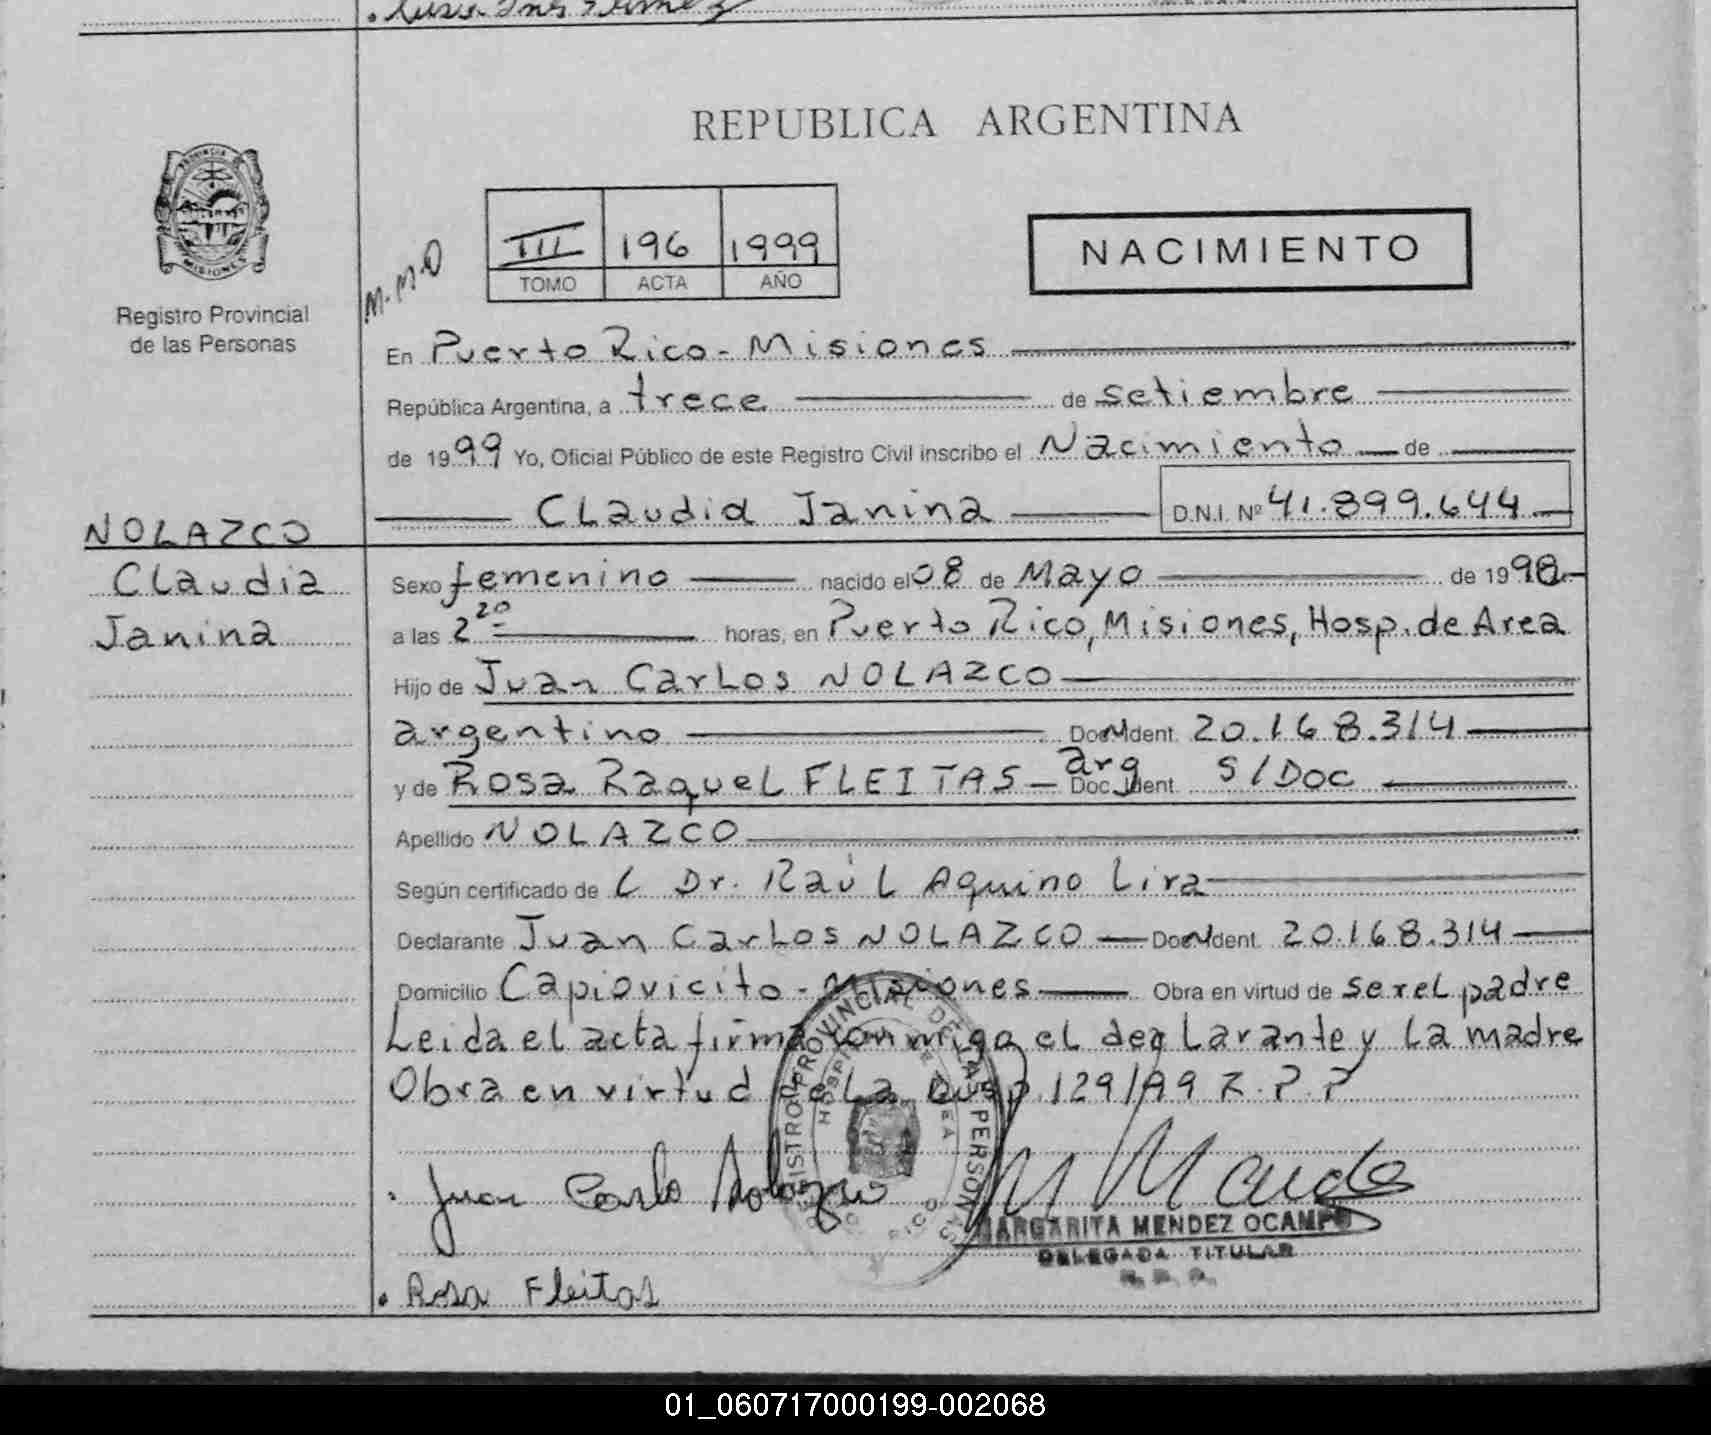 REPUBLICA ARGENTINA
PROVINCIA
MISIONES
Registro Provincial
de las Personas
M.M.O
III 196 1999
TOMO ACTA AÑO
NACIMIENTO
En Puerto Rico - Misiones
República Argentina, a trece de setiembre
de 1999 Yo, Oficial Público de este Registro Civil inscribo el Nacimiento de
Claudia Janina D.N.I. Nº 41.899.644
NOLAZCO
Claudia
Janina
Sexo femenino nacido el 08 de Mayo de 1998
a las 2 20 horas, en Puerto Rico, Misiones, Hosp. de Area
Hijo de Juan Carlos NOLAZCO
argentino Doc Ident. 20.168.314
y de Rosa Raquel FLEITAS - arg Doc. Ident. S/Doc
Apellido NOLAZCO
Según certificado de L Dr. Raúl Aquino Lira
Declarante Juan Carlos NOLAZCO Doc Ident. 20.168.314
Domicilio Capiovicito - Misiones Obra en virtud de ser el padre
Leida el acta firma conmigo el declarante y la madre
Obra en virtud de la Disp. 129/99 R.P.P
REGISTRO PROVINCIAL DE LAS PERSONAS
Juan Carlo Nolazco
MARGARITA MENDEZ OCAMPO
DELEGADA TITULAR
R. P. P.
Rosa Fleitas
01_060717000199-002068